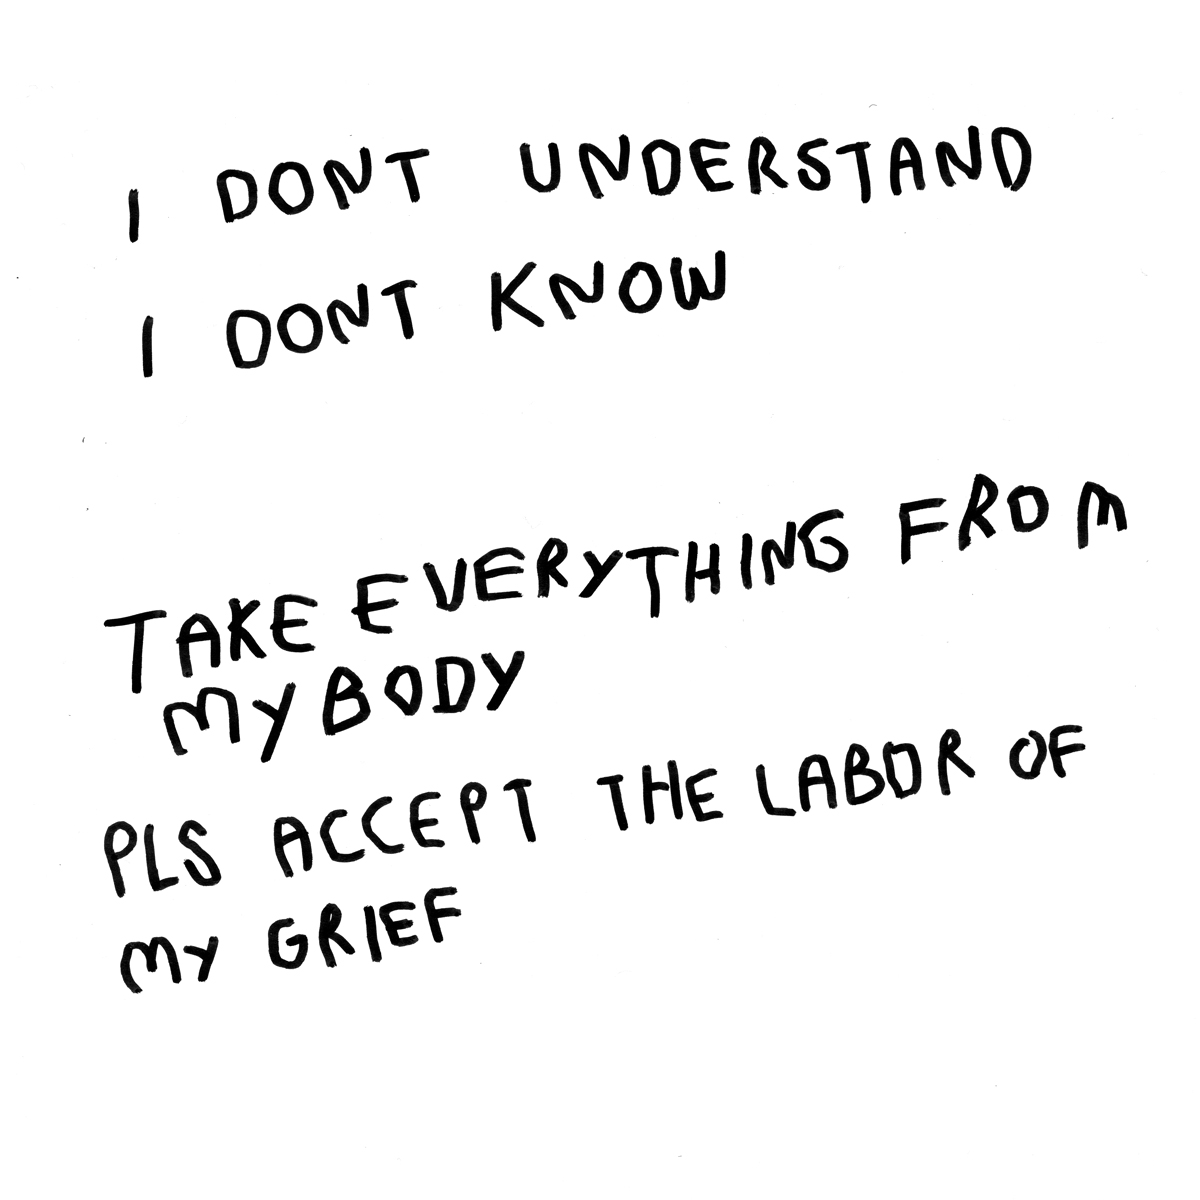 I DONT UNDERSTAND
I DONT KNOW
TAKE EVERYTHING FROM
MY BODY
PLS ACCEPT THE LABOR OF
MY GRIEF